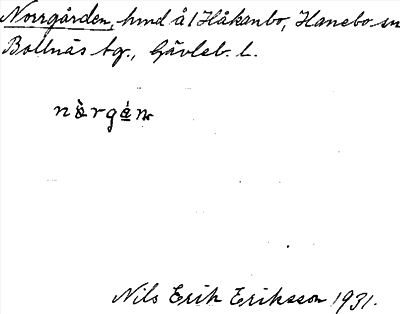 Norrgården, hmd å 1 Håkanbo, Hanebo sn
Bollnäs tg., Gävleb. l.
nὰrgά̱n
Nils Erik Eriksson 1931.